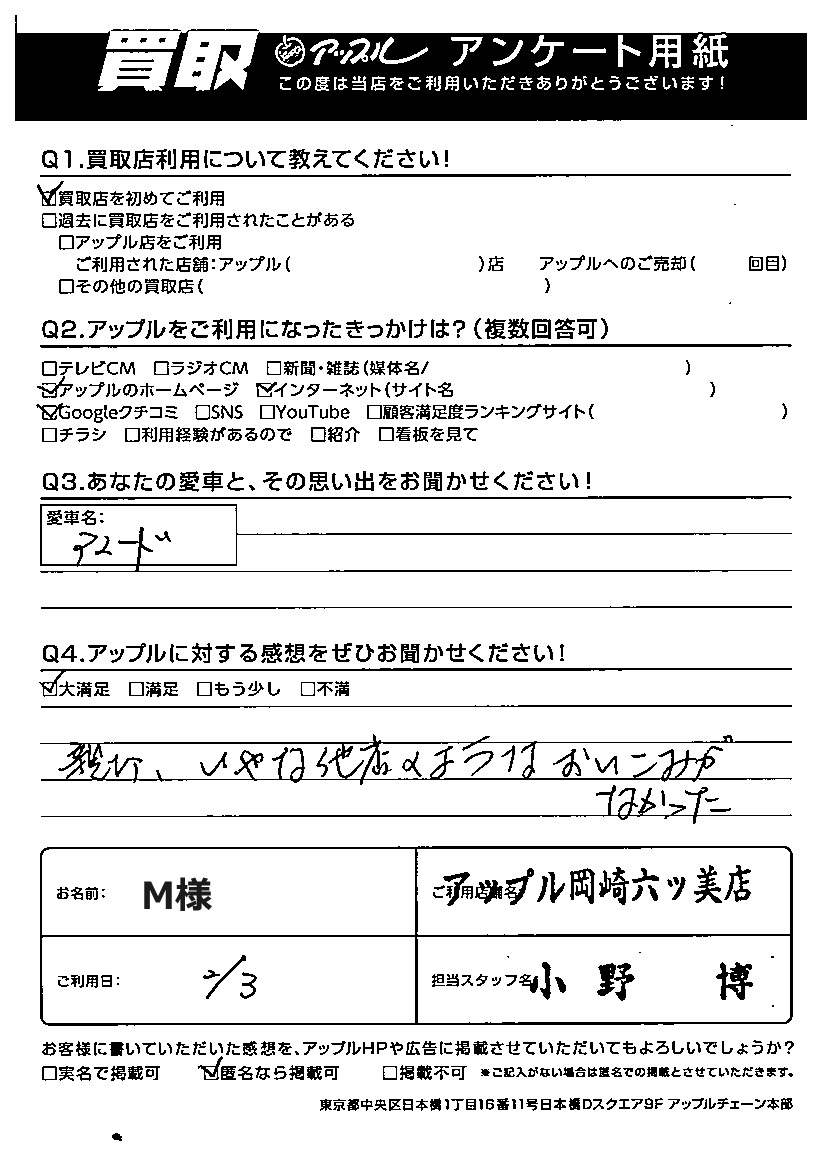 買取 アップル アンケート用紙
この度は当店をご利用いただきありがとうございます!
Q1.買取店利用について教えてください!
☑買取店を初めてご利用
□過去に買取店をご利用されたことがある
□アップル店をご利用
ご利用された店舗:アップル( )店 アップルへのご売却( 回目)
□その他の買取店( )
Q2.アップルをご利用になったきっかけは?(複数回答可)
□テレビCM □ラジオCM □新聞・雑誌(媒体名/ )
☑アップルのホームページ ☑インターネット(サイト名 )
☑Googleクチコミ □SNS □YouTube □顧客満足度ランキングサイト( )
□チラシ □利用経験があるので □紹介 □看板を見て
Q3.あなたの愛車と、その思い出をお聞かせください!
愛車名:
Q4.アップルに対する感想をぜひお聞かせください!
☑大満足 □満足 □もう少し □不満
、いやな他店のようなおいこみが
なかった
お名前: M様
ご利用店舗名 アップル岡崎六ッ美店
ご利用日: 2/3
担当スタッフ名 小野 博
お客様に書いていただいた感想を、アップルHPや広告に掲載させていただいてもよろしいでしょうか?
□実名で掲載可 ☑匿名なら掲載可 □掲載不可 *ご記入がない場合は匿名での掲載とさせていただきます。
東京都中央区日本橋1丁目16番11号日本橋Dスクエア9F アップルチェーン本部